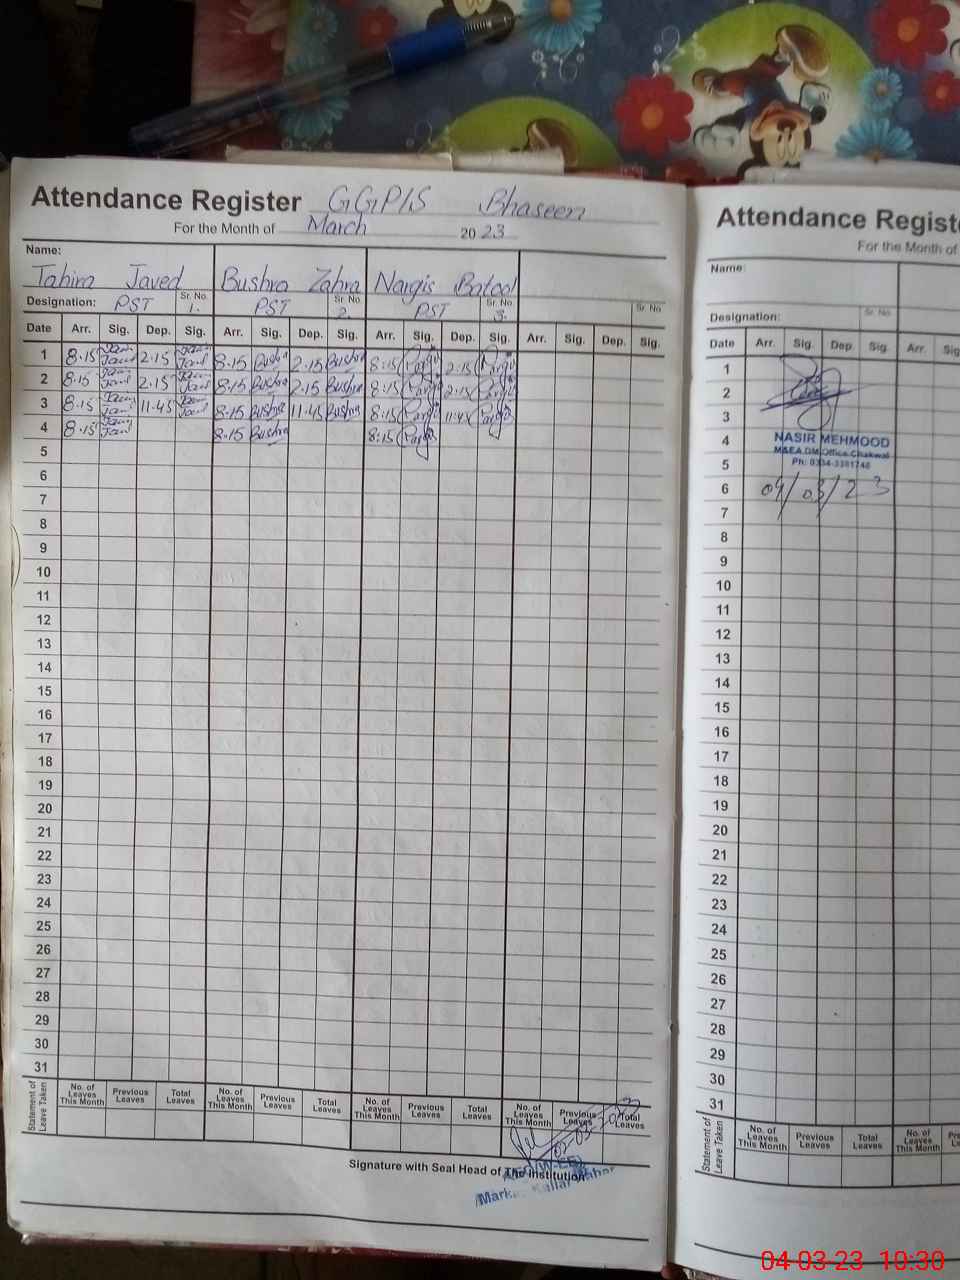 Attendance Register GGP/S Bhaseen
For the Month of March 2023
Name:
Tahira Javed Bushra Zahra Nargis Batool
Designation: PST Sr. No. 1. PST Sr. No. 2. PST 3. Sr. No.
Date Arr. Sig. Dep. Sig. Arr. Sig. Dep. Sig. Arr. Sig. Dep. Sig. Arr. Sig. Dep. Sig.
1 8.15 2.15 8.15 Bushra 2.15 Bushra 8:15 2:15
2 8.15 2.15 8.15 Bushra 2.15 Bushra 8:15 2:15
3 8.15 11.45 8.15 Bushra 11.45 Bushra 8:15 11:45
4 8.15 8.15 Bushra 8:15
5
6
7
8
9
10
11
12
13
14
15
16
17
18
19
20
21
22
23
24
25
26
27
28
29
30
31
Statement of Leave Taken
No. of Leaves This Month Previous Leaves Total Leaves No. of Leaves This Month Previous Leaves Total Leaves No. of Leaves This Month Previous Leaves Total Leaves No. of Leaves This Month Previous Leaves Total Leaves
Signature with Seal Head of The Institution
Attendance Registe
For the Month of
Name:
Designation: Sr. No.
Date Arr. Sig. Dep. Sig. Arr. Sig
1
2
3
4 NASIR MEHMOOD
M&EA,DM,Office,Chakwal
5
6 04/03/23
7
8
9
10
11
12
13
14
15
16
17
18
19
20
21
22
23
24
25
26
27
28
29
30
31
Statement of Leave Taken
No. of Leaves This Month Previous Leaves Total Leaves No. of Leaves This Month
04-03-23 10:30